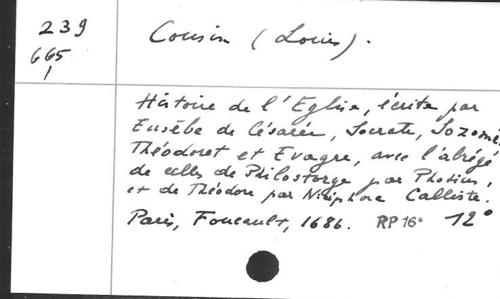 239
665
1
Cousin (Louis).
Histoire de l'Eglise, écrite par
Eusèbe de Césarée, Socrate, Sozome,
Théodoret et Evagre, avec l'abrégé
de celle de Philostorge par Photius,
et de Théodore par Nicéphore Calliste.
Paris, Foucault, 1686. RP 16° 12°